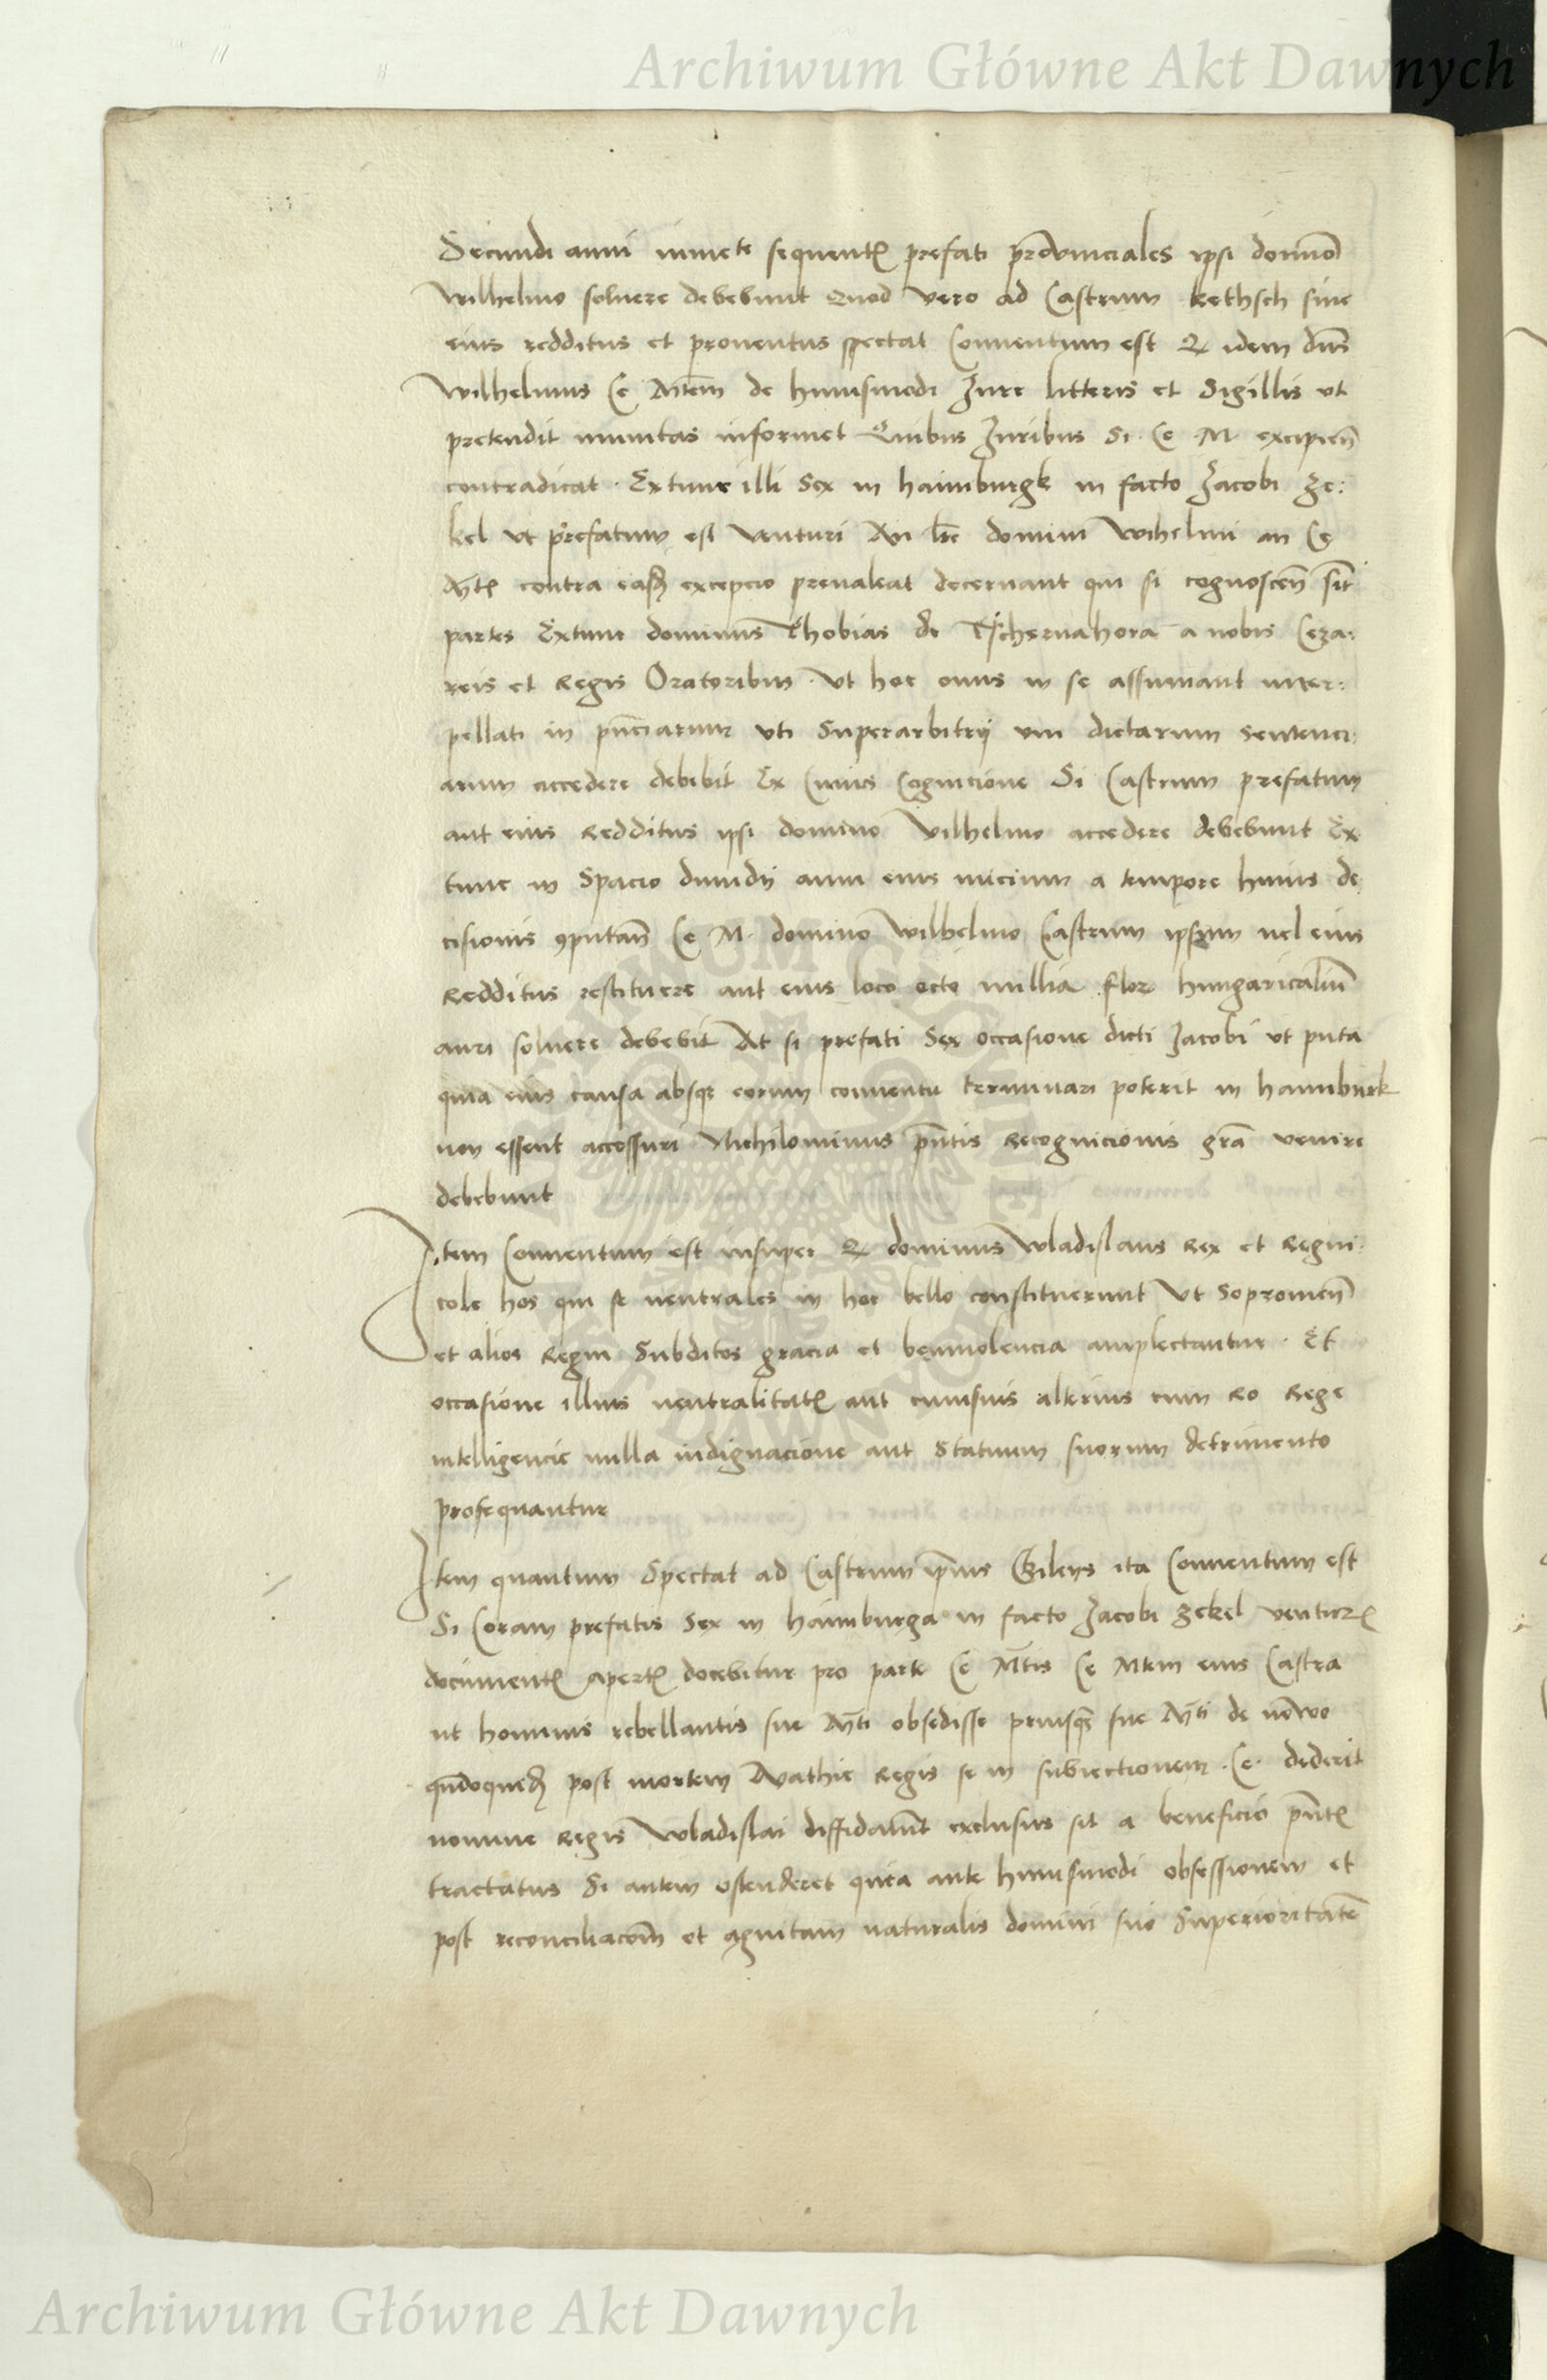 Archiwum Główne Akt Dawnych
Secundi anni inmete sequentꝭ prefati provinciales ipsi domino
Wilhelmo soluere debebunt Quod vero ad Castrum kethsch siue
eius redditus et prouentus spectat Conuentum est Q idem dns
Wilhelmus Ce Mtem de huiusmodi Jure litteris et Sigillis vt
pretendit munitas informet Quibus Juribus Si Ce M excipien
contradicat . Extunc illi Sex in haimburgk in facto Jacobi Ze:
kel vt prefatum est Venturi An lre domini Wihelmi an Ce
Mtꝭ contra easd excepcio preualeat decernant qui si cognoscen sint
partes Extunc dominus Thobias de Tschernahora a nobis Ceza:
reis et Regis Oratoribus . vt hoc onus in se assumant inter:
pellati in pnciarum vti Superarbitrij vni dictarum sentenci:
arum accedere debebit Ex Cuius Cognicione Si Castrum prefatum
aut eius Redditus ipsi domino Vilhelmo accedere debebunt Ex
tunc in Spacio dimidij anni eius inicium a tempore huius de
cisionis 9putan Ce M. domino Wilhelmo Castrum ipsum uel eius
Redditus restituere aut eius loco octo millia flor hungaricaliu
auri soluere debebit At si prefati Sex occasione dicti Jacobi vt puta
quia eius causa absqꝫ eorum conuentu terminari poterit in haimburk
non essent accessuri Nichilominus pntis Recognicionis gra venire
debebunt
Item Conuentum est insuper Q dominus Wladislaus Rex et Regni:
cole hos qui se neutrales in hoc bello constituerunt Vt Sopronien
et alios Regni Subditos gracia et beniuolencia amplectantur . Et
occasione illius neutralitatꝭ aut cuiusuis alterius cum Ro Rege
intelligencie nulla indignacione aut Statuum suorum detrimento
prosequantur
Item quantum Spectat ad Castrum ipius Gileys ita Conuentum est
Si Coram prefatis Sex in haimburga in facto Jacobi Zekel venturꝭ
documentꝭ apertꝭ docebitur pro parte Ce Mtis Ce Mtem eius Castra
ut hominis rebellantis sue Mti obsedisse priusqꝫ sue Mti de nouo
qndoqued post mortem Mathie Regis se in subiectionem . Ce . dederit
nomine Regis Wladislai diffidauit exclusus sit a beneficio pntꝭ
tractatus Si autem ostenderet quia ante huiusmodi obsessionem et
post reconciliacom et agnitam naturalis domini sui Superioritate
Archiwum Główne Akt Dawnych